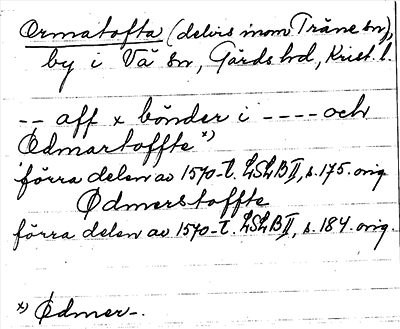 Ormatofta (delvis inom Träne sn),
by i Vä sn, Gärds hd, Krist. l.
-- aff x bönder i ---- och
Ødmartoffte x)
förra delen av 1570-t. LSLB II, s. 175. orig
Ødmerstoffte
förra delen av 1570-t. LSLB II, s. 184. orig.
x) Ødmer-.